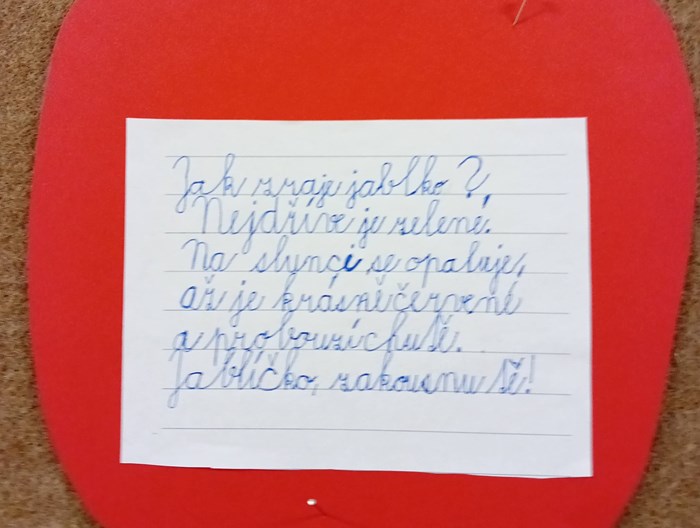 Jak zraje jablko?
Nejdříve je zelené.
Na slunci se opaluje,
až je krásně červené
a probouzí chutě.
Jablíčko, zakousnu tě!